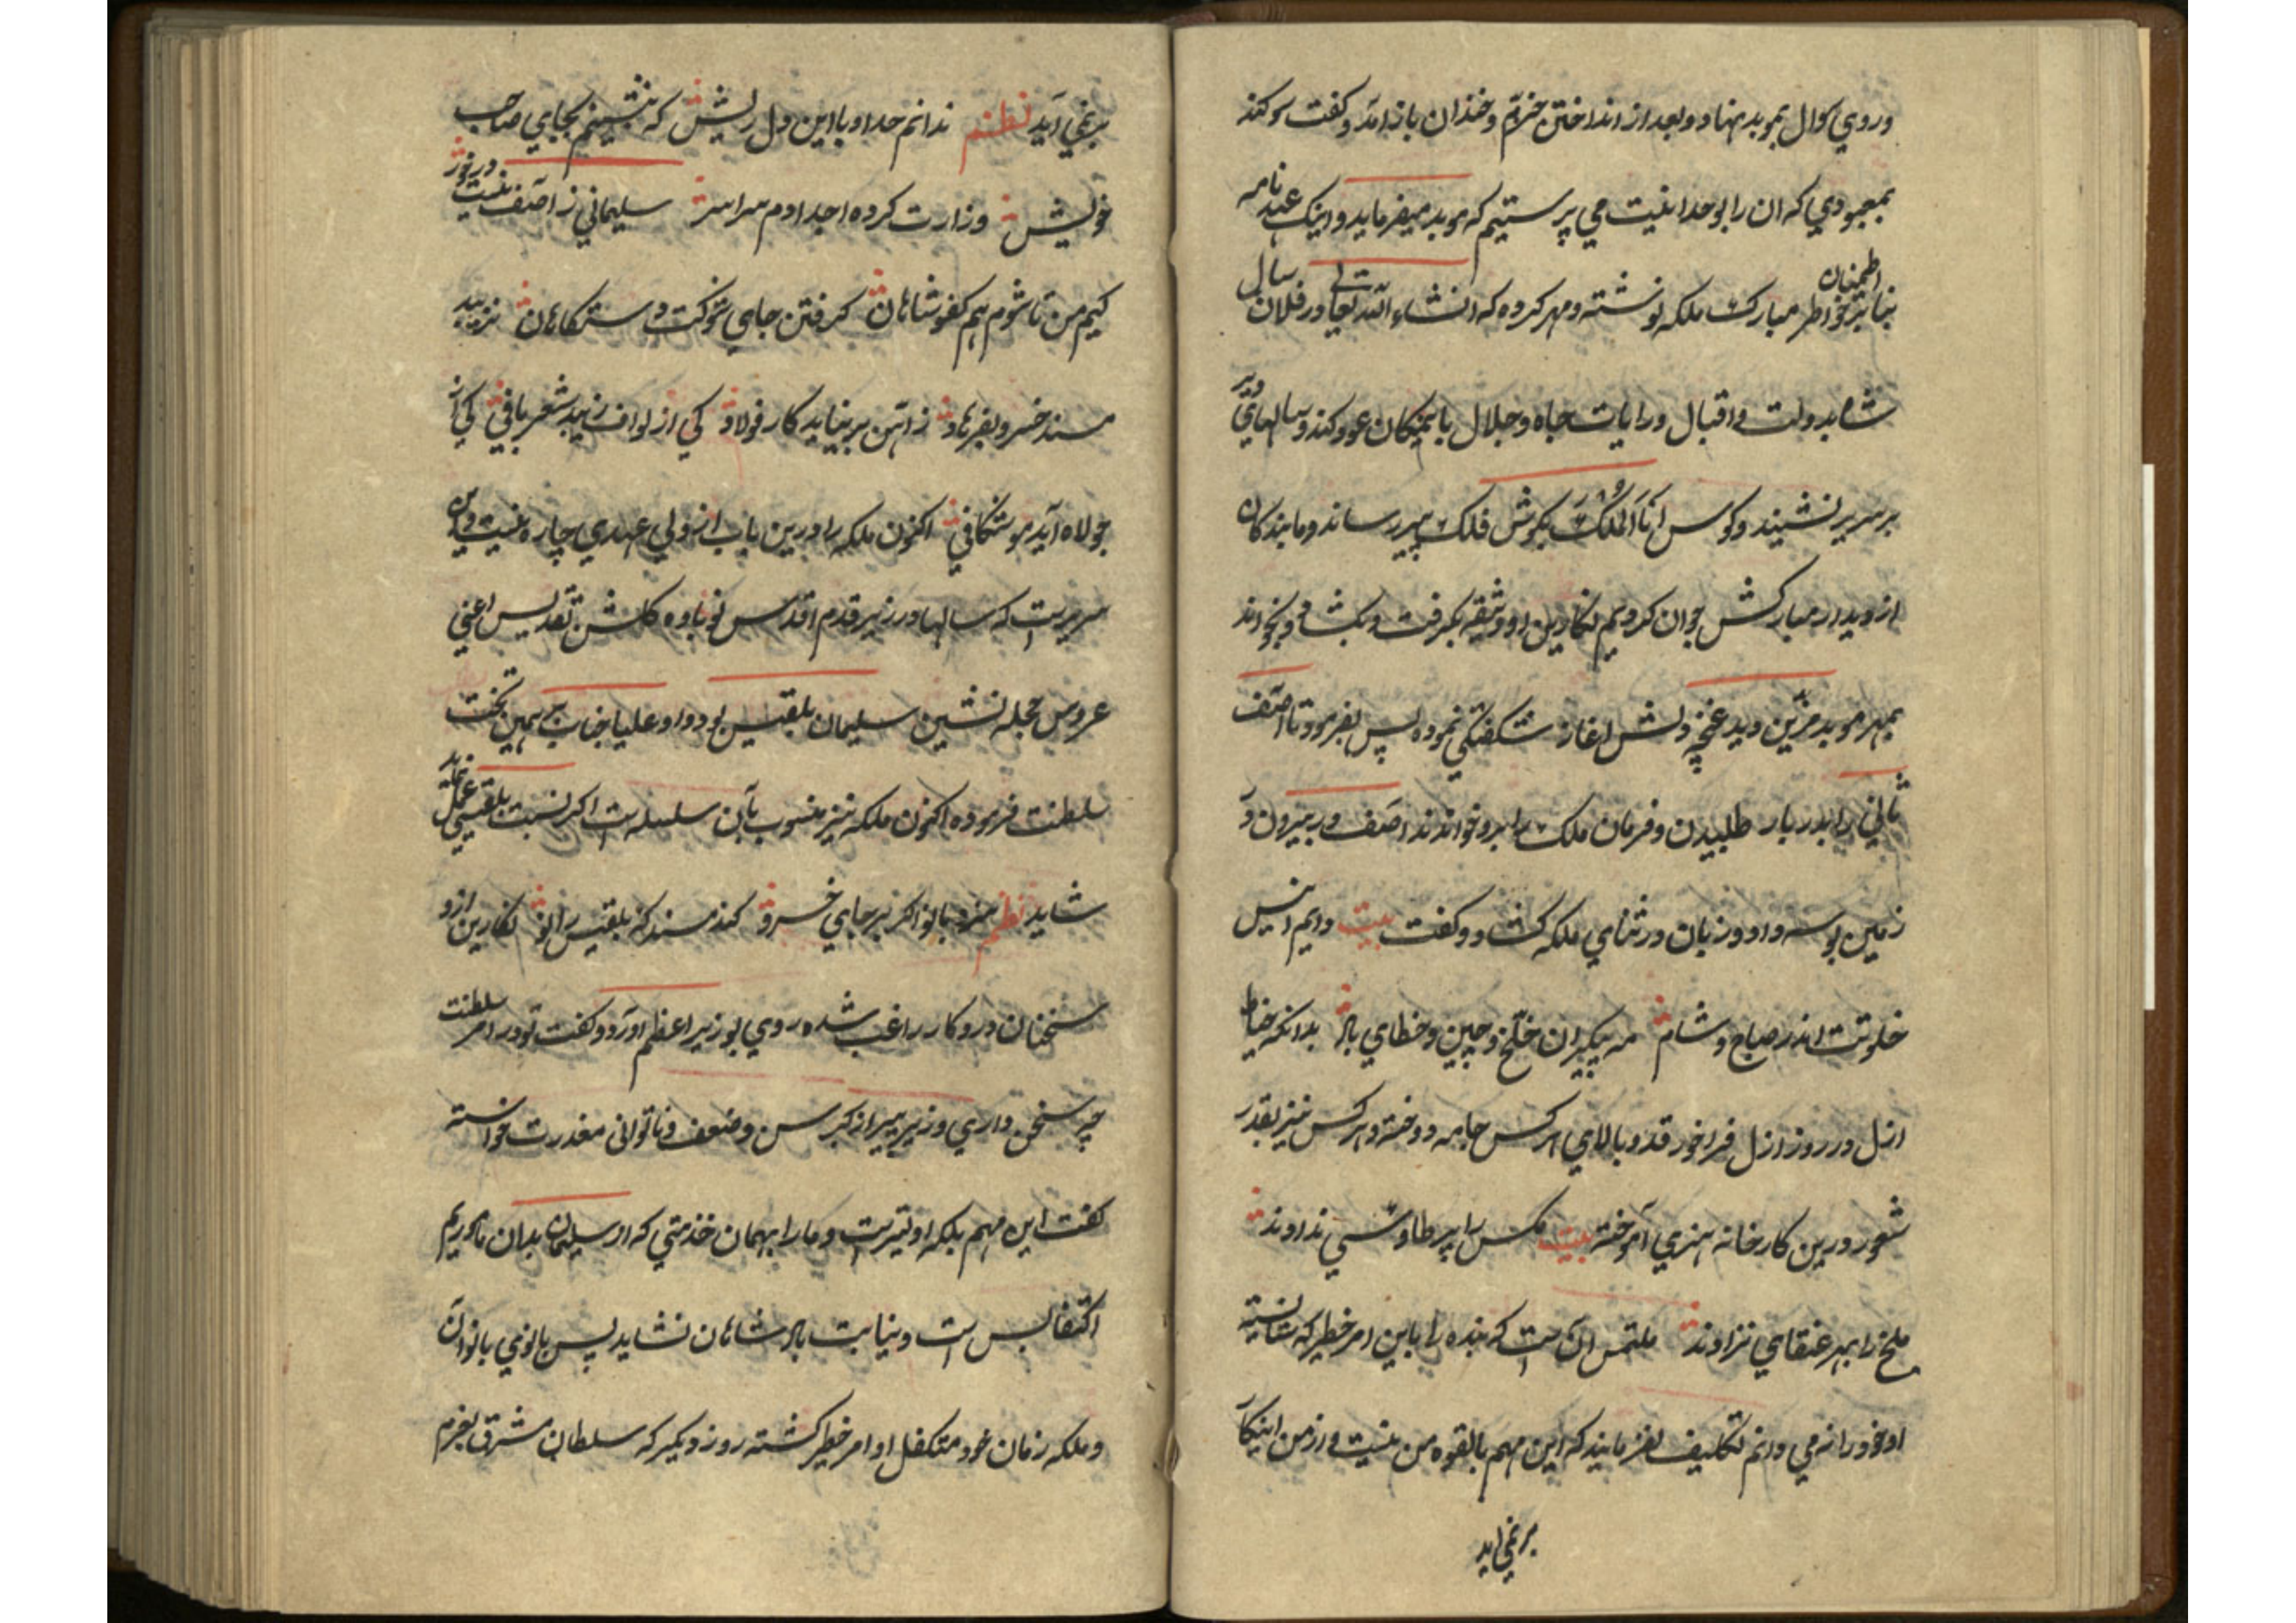 و روی کوال بموبد نهاد و بعد از انداختن خرّم و خندان باز آمد و گفت سوگند
بمعبودی که ان را بوحدانیت می پرستیم که موبد میفرماید و اینک عهد نامه
بنا بر اطمینان خواطر مبارک ملکه نوشته و مهر کرده که انشاء الله تعالی در فلان سال
شاه بدولت و اقبال و رایات جاه و جلال با یمکان عود کند و سالهای دیر
بر سریر نشیند و کوس انا و الملک بگوش فلک پیر رساند و ما بندگان
از دیدار مبارکش جوان گردیم نگارین او وثیقه بگرفت و بگشاد و بخواند
بمهر موبد مزّین دید غنچه دلش اغاز شگفتگی نموده پس بفرمود تا آصف
ثانی را بدربار طلبیدن و فرمان ملک را برو خواندند آصف در بیرون در
زمین بوسه داد و زبان در ثنای ملکه گشاد و گفت بیت دایم انیس
خلوتت اندر صباح و شام مه پیکران خلّخ و چین و خطای باد بدانکه خیاط
ازل در روز ازل فراخور قد و بالای هر کس جامه دوخته و هر کس نیز بقدر
شعور درین کارخانه هنری آموخته بیت مگس را پر طاوسی ندادند
ملخ را بهر عنقایی نزادند ملتمس آن است که بنده را باین امر خطیر که شایسته
او خود را نمی دانم تکلیف نفرمایند که این مهم بالقوه من نیست و از من اینکار
بر نمی اید
بر نمی آید نظم ندانم حد او با این دل ریش که بنشینم بجای صاحب
خویش وزارت کرده اجدادم سراسر سلیمانی ز آصف نیست در خور
کیم من تا شوم هم کفو شاهان گرفتن جای شوکت دستگاهان نزیبد
مسند خسرو بفرهاد ز آهن بر نیاید کار فولاد کی از نواف زیبد شعر بافی کی از
جولاه آید موشکافی اکنون ملکه را درین باب از ولی عهدی چاره نیست و این
سریریست که سالها در زیر قدم اقدس نوباوه گلشن تقدیس اعنی
عروس حجله نشین سلیمان بلقیس بود و او علیا جناب بهمین تخت
سلطنت فرموده اکنون ملکه نیز منسوب بآن سلسله است اگر نسبت بلقیس عمل نماید
شاید نظم سزد بانو اگر بر جای خسرو کند مسند که بلقیس را نو نگارین ازو
سخنان در و کار راغب شده روی بوزیر اعظم آورد و گفت تو در امر سلطنت
چه سخن داری وزیر پیر از کبر سن و ضعف و ناتوانی معذرت خواسته
گفت این مهم بملکه اولیتر است و ما را بهمان خدمتی که از سلیمان بدان ماموریم
اکتفا بس است و نیابت باد شاهان نشاید پس بانوی بانوان
و ملکه زمان خود متکفل او امر خطر گشته روز دیگر که سلطان مشرق بعزم